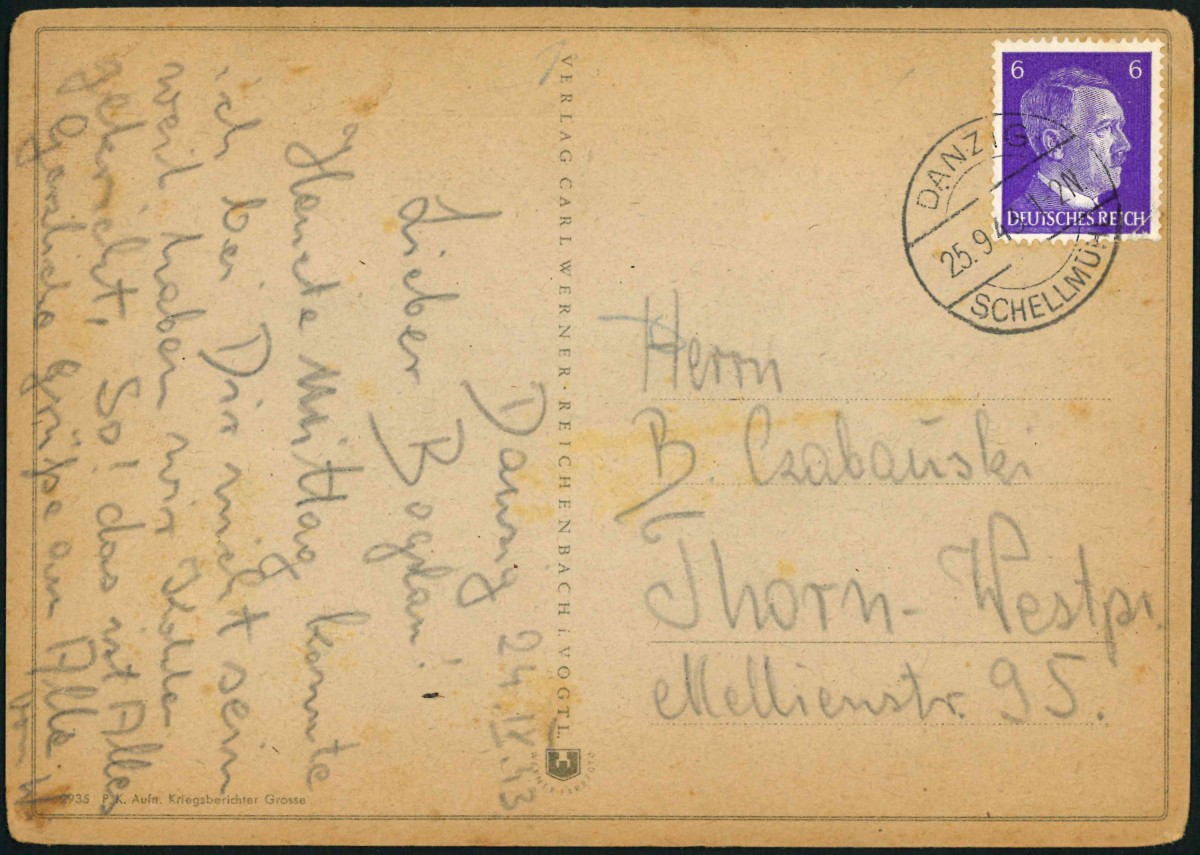 Danzig 24.IX.43
Lieber Bogdan!
Heute Mittag konnte
ich bei Dir nicht sein
weil haben wir
gekriecht. So! das ist Alles
Herzliche Grüße an Alle.
VERLAG CARL WERNER · REICHENBACH i. VOGTL.
6 6
DEUTSCHES REICH
DANZIG
25.9.4
2N
SCHELLMÜH
Herrn
B. Czabański
Thorn - Westpr.
Mellienstr. 95.
2935 P. K. Aufn. Kriegsberichter Grosse